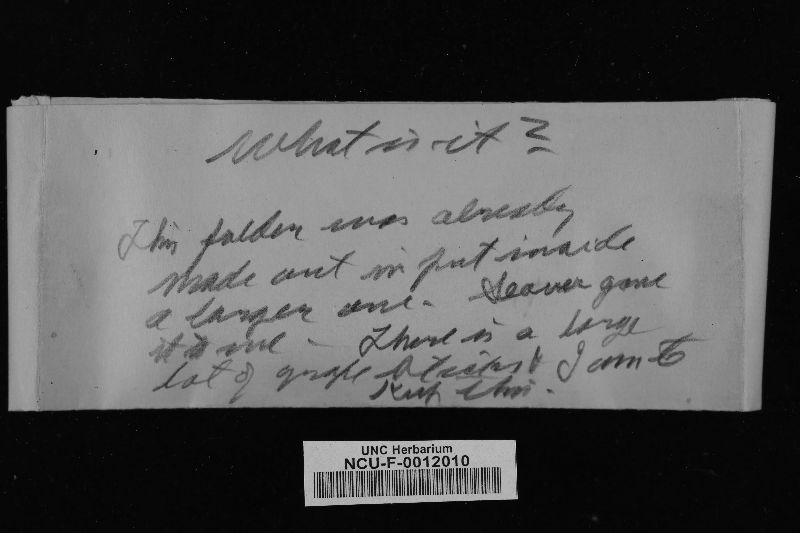 What is it?
This folder was already
made out in put inside
a larger one. Seaver gave
it to me - There is a large
lot of grape sticks & I am to
Keep this.
UNC Herbarium
NCU-F-0012010